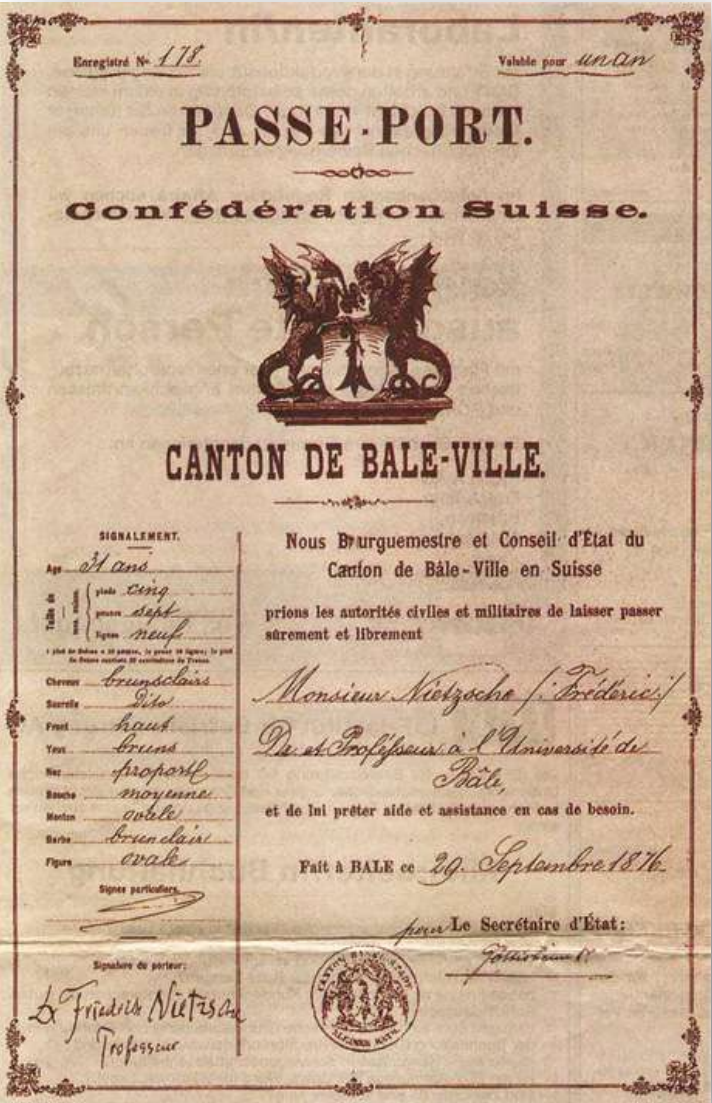 Enregistré Nº 178.
Valable pour un an
PASSE-PORT.
Confédération Suisse.
CANTON DE BALE-VILLE.
SIGNALEMENT.
Age 31 ans
Taille de
pieds cinq
pouces sept
lignes neuf
Cheveux brunsclairs
Sourcils Dito
Front haut
Yeux bruns
Nez proport
Bouche moyenne
Menton ovale
Barbe brun clair
Figure ovale
Signes particuliers.
Signature du porteur:
Dr Friedrich Nietzsche
Professeur
Nous Bourguemestre et Conseil d'État du
Canton de Bâle-Ville en Suisse
prions les autorités civiles et militaires de laisser passer
sûrement et librement
Monsieur Nietzsche /: Frédéric :/
Dr et Professeur à l'Université de
Bâle,
et de lui prêter aide et assistance en cas de besoin.
Fait à BALE ce 29. Septembre 1876.
pour Le Secrétaire d'État:
CANTON BASEL STADT